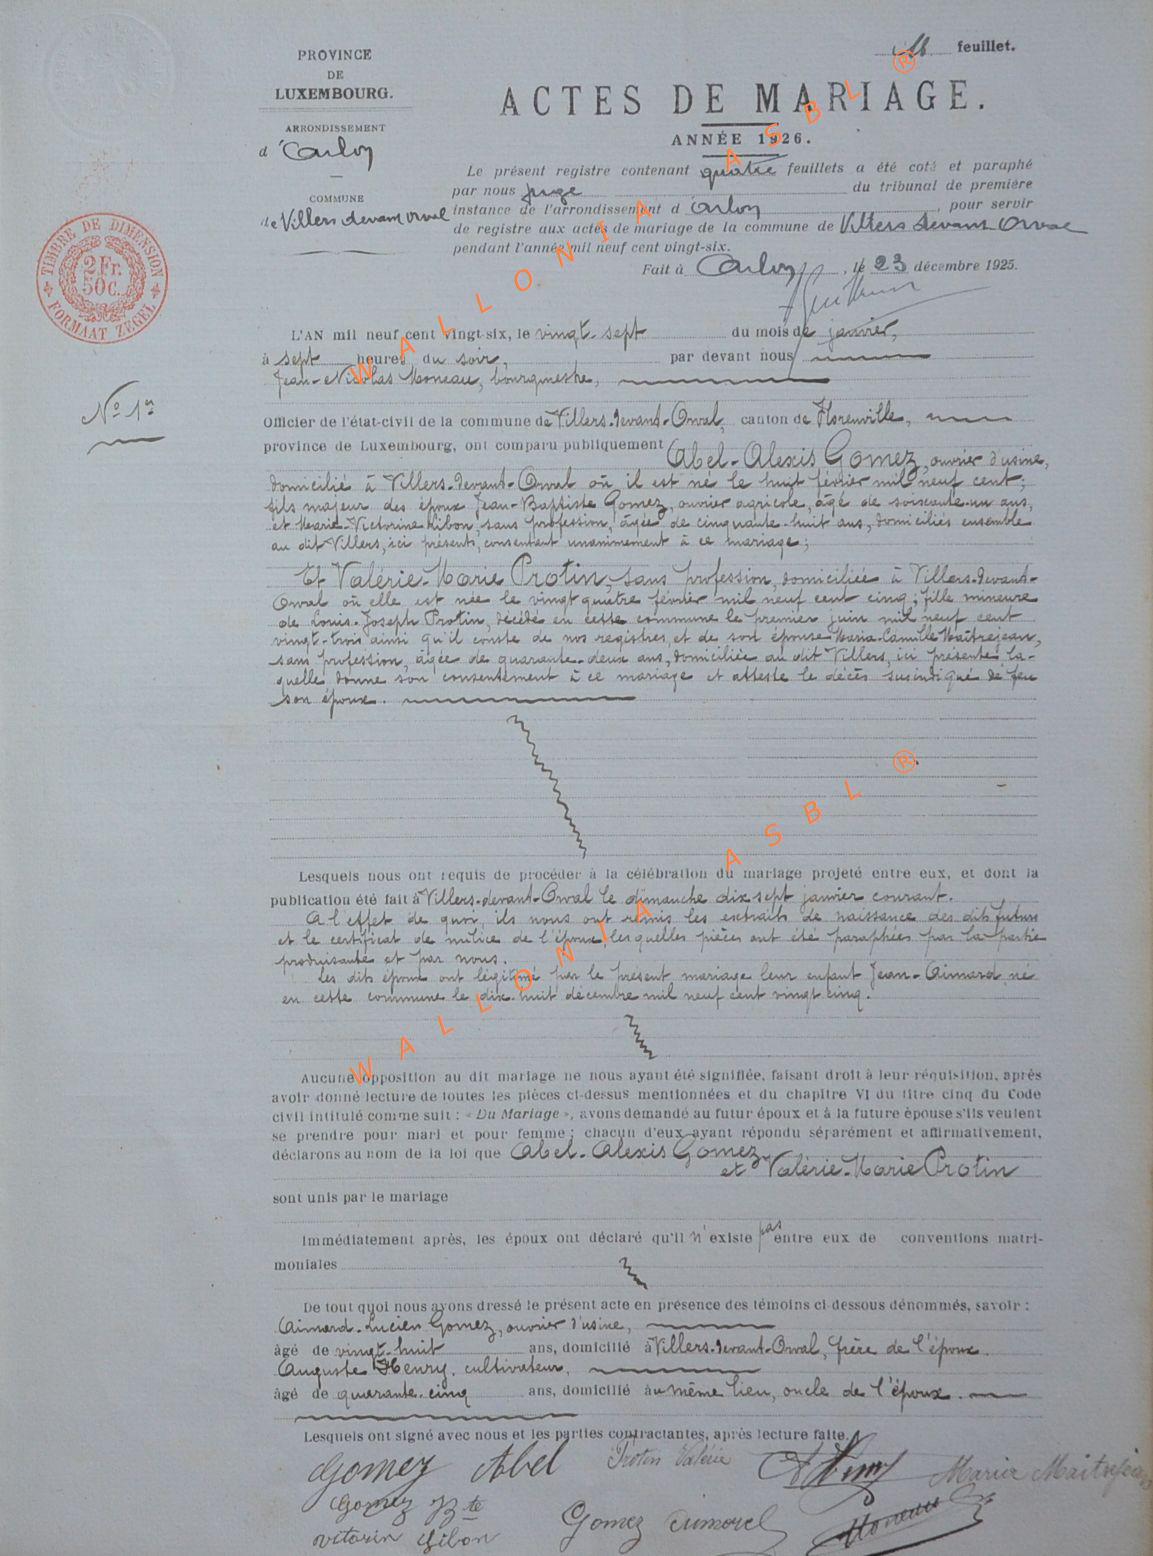 1er feuillet.
PROVINCE
DE
LUXEMBOURG.
ARRONDISSEMENT
d'Arlon
COMMUNE
de Villers devant Orval
TIMBRE DE DIMENSION
2 Fr.
50 c.
FORMAAT ZEGEL
ACTES DE MARIAGE.
ANNÉE 1926.
Le présent registre contenant quatre feuillets a été coté et paraphé
par nous juge du tribunal de première
instance de l'arrondissement d'Arlon, pour servir
de registre aux actes de mariage de la commune de Villers devant Orval
pendant l'année mil neuf cent vingt-six.
Fait à Arlon, le 23 décembre 1925.
No 1er
L'AN mil neuf cent vingt-six, le vingt-sept du mois de janvier,
à sept heures du soir, par devant nous
Jean-Nicolas Moneau, bourgmestre,
Officier de l'état-civil de la commune de Villers-devant-Orval, canton de Florenville,
province de Luxembourg, ont comparu publiquement Abel-Alexis Gomez, ouvrier d'usine,
domicilié à Villers-devant-Orval où il est né le huit février mil neuf cent;
fils majeur des époux Jean-Baptiste Gomez, ouvrier agricole, âgé de soixante-un ans,
et Marie-Victorine Gibon, sans profession, âgée de cinquante-huit ans, domiciliés ensemble
au dit Villers, ici présents, consentant unanimement à ce mariage;
Et Valérie-Marie Protin, sans profession, domiciliée à Villers-devant-
Orval où elle est née le vingt quatre février mil neuf cent cinq; fille mineure
de Louis-Joseph Protin, décédé en cette commune le premier juin mil neuf cent
vingt-trois ainsi qu'il conste de nos registres, et de son épouse Maria-Camille Maîtrejean,
sans profession, âgée de quarante-deux ans, domiciliée au dit Villers, ici présente la-
quelle donne son consentement à ce mariage et atteste le décès susindiqué de feu
son époux.
Lesquels nous ont requis de procéder à la célébration du mariage projeté entre eux, et dont la
publication été fait à Villers-devant-Orval le dimanche dix sept janvier courant.
A l'effet de quoi, ils nous ont remis les extraits de naissance des dits futurs
et le certificat de milice de l'époux, lesquelles pièces ont été paraphées par la partie
produisante et par nous.
Les dits époux ont légitimé par le présent mariage leur enfant Jean-Aimard né
en cette commune le dix-huit décembre mil neuf cent vingt cinq.
Aucune opposition au dit mariage ne nous ayant été signifiée, faisant droit à leur réquisition, après
avoir donné lecture de toutes les pièces ci-dessus mentionnées et du chapitre VI du titre cinq du Code
civil intitulé comme suit : « Du Mariage », avons demandé au futur époux et à la future épouse s'ils veulent
se prendre pour mari et pour femme ; chacun d'eux ayant répondu séparément et affirmativement,
déclarons au nom de la loi que Abel-Alexis Gomez
et Valérie-Marie Protin
sont unis par le mariage
Immédiatement après, les époux ont déclaré qu'il n'existe pas entre eux de conventions matri-
moniales
De tout quoi nous avons dressé le présent acte en présence des témoins ci-dessous dénommés, savoir :
Aimard-Lucien Gomez, ouvrier d'usine,
âgé de vingt-huit ans, domicilié à Villers-devant-Orval, frère de l'époux.
Auguste Henry, cultivateur,
âgé de quarante-cinq ans, domicilié au même lieu, oncle de l'époux.
Lesquels ont signé avec nous et les parties contractantes, après lecture faite.
Gomez Abel Protin Valérie A Henry Maria Maîtrejean
Gomez Bte
victorin Gibon Gomez Aimard Moneau
WALLONIA ASBL ®
WALLONIA ASBL ®